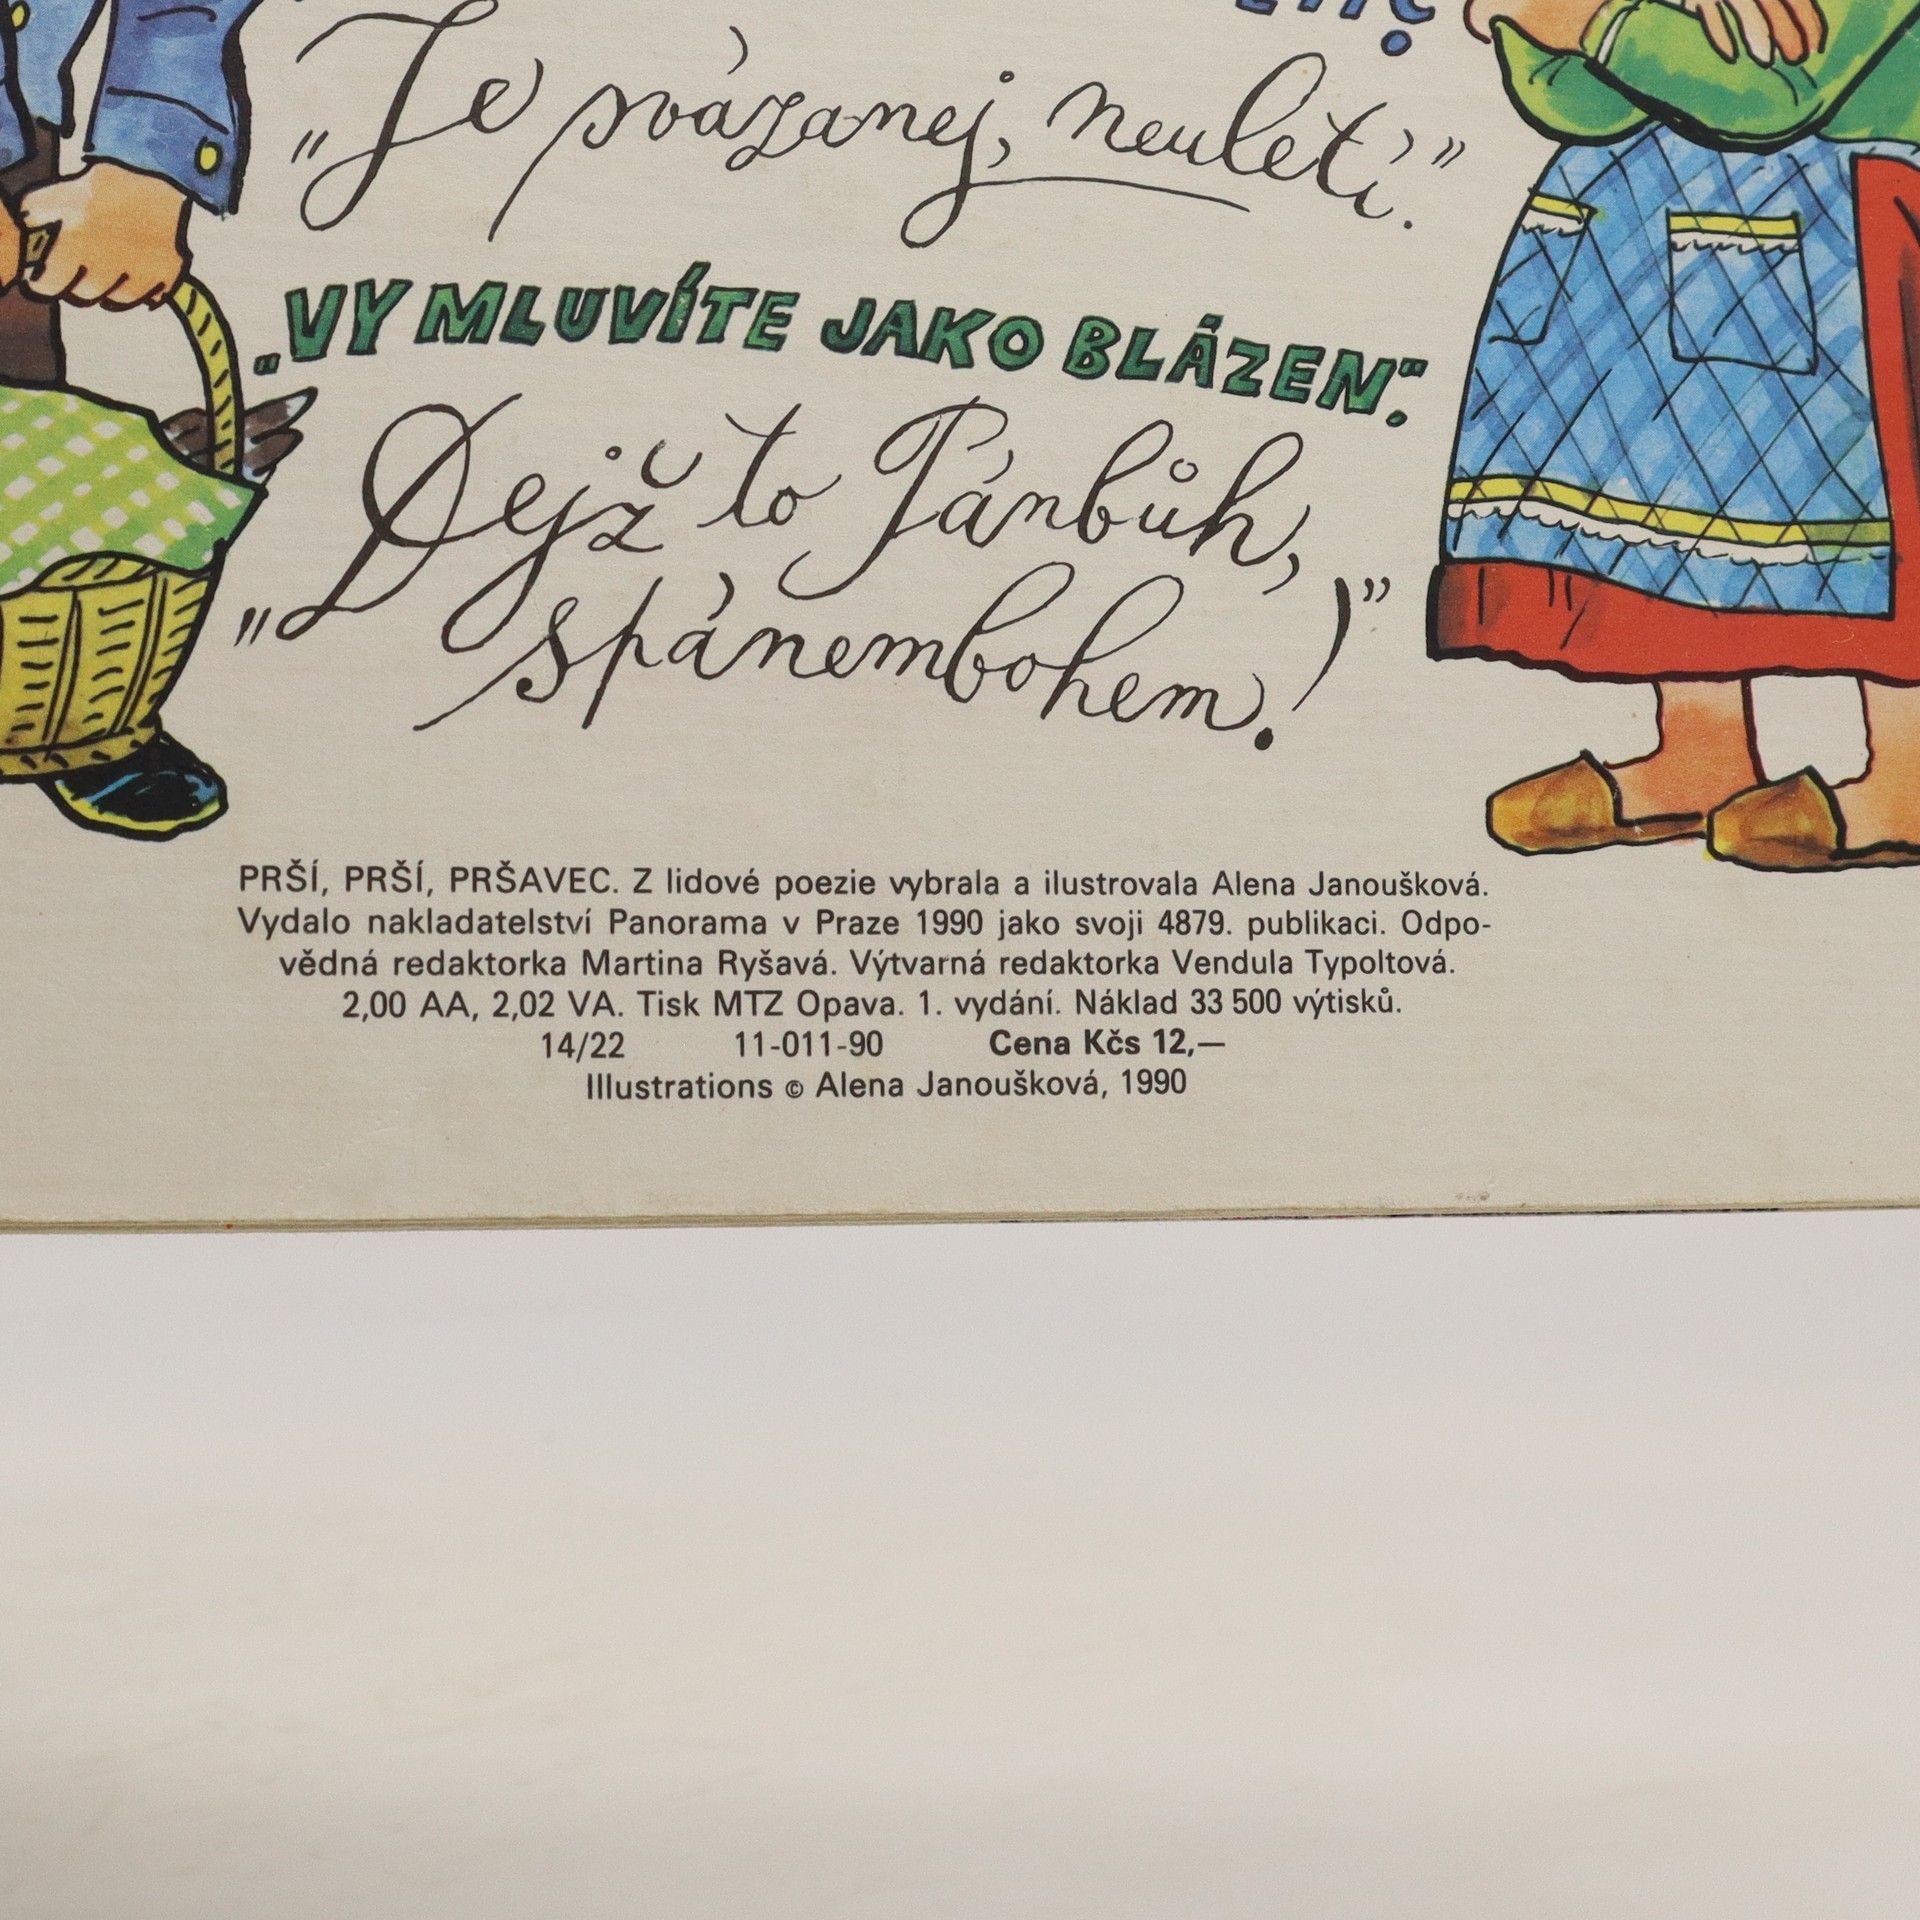 „Je svázanej, neuletí.”
„VY MLUVÍTE JAKO BLÁZEN.”
„Dejž to Pánbůh,
spánembohem!”
PRŠÍ, PRŠÍ, PRŠAVEC. Z lidové poezie vybrala a ilustrovala Alena Janoušková.
Vydalo nakladatelství Panorama v Praze 1990 jako svoji 4879. publikaci. Odpo-
vědná redaktorka Martina Ryšavá. Výtvarná redaktorka Vendula Typoltová.
2,00 AA, 2,02 VA. Tisk MTZ Opava. 1. vydání. Náklad 33 500 výtisků.
14/22 11-011-90 Cena Kčs 12,—
Illustrations © Alena Janoušková, 1990